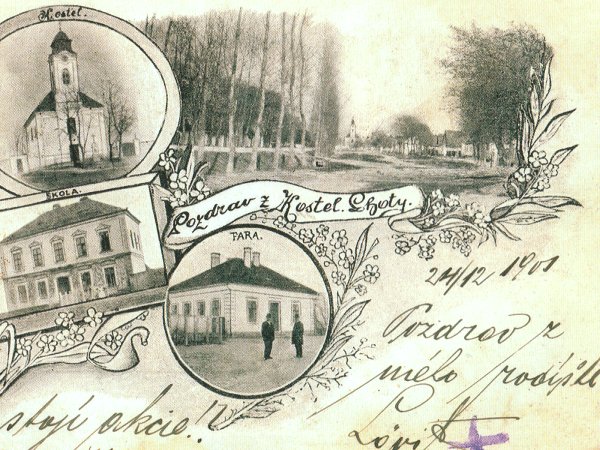 Kostel.
ŠKOLA.
Pozdrav z Kostel. Lhoty.
FARA.
24/12 1901
Pozdrav z
mého rodiště
stojí akcie!!